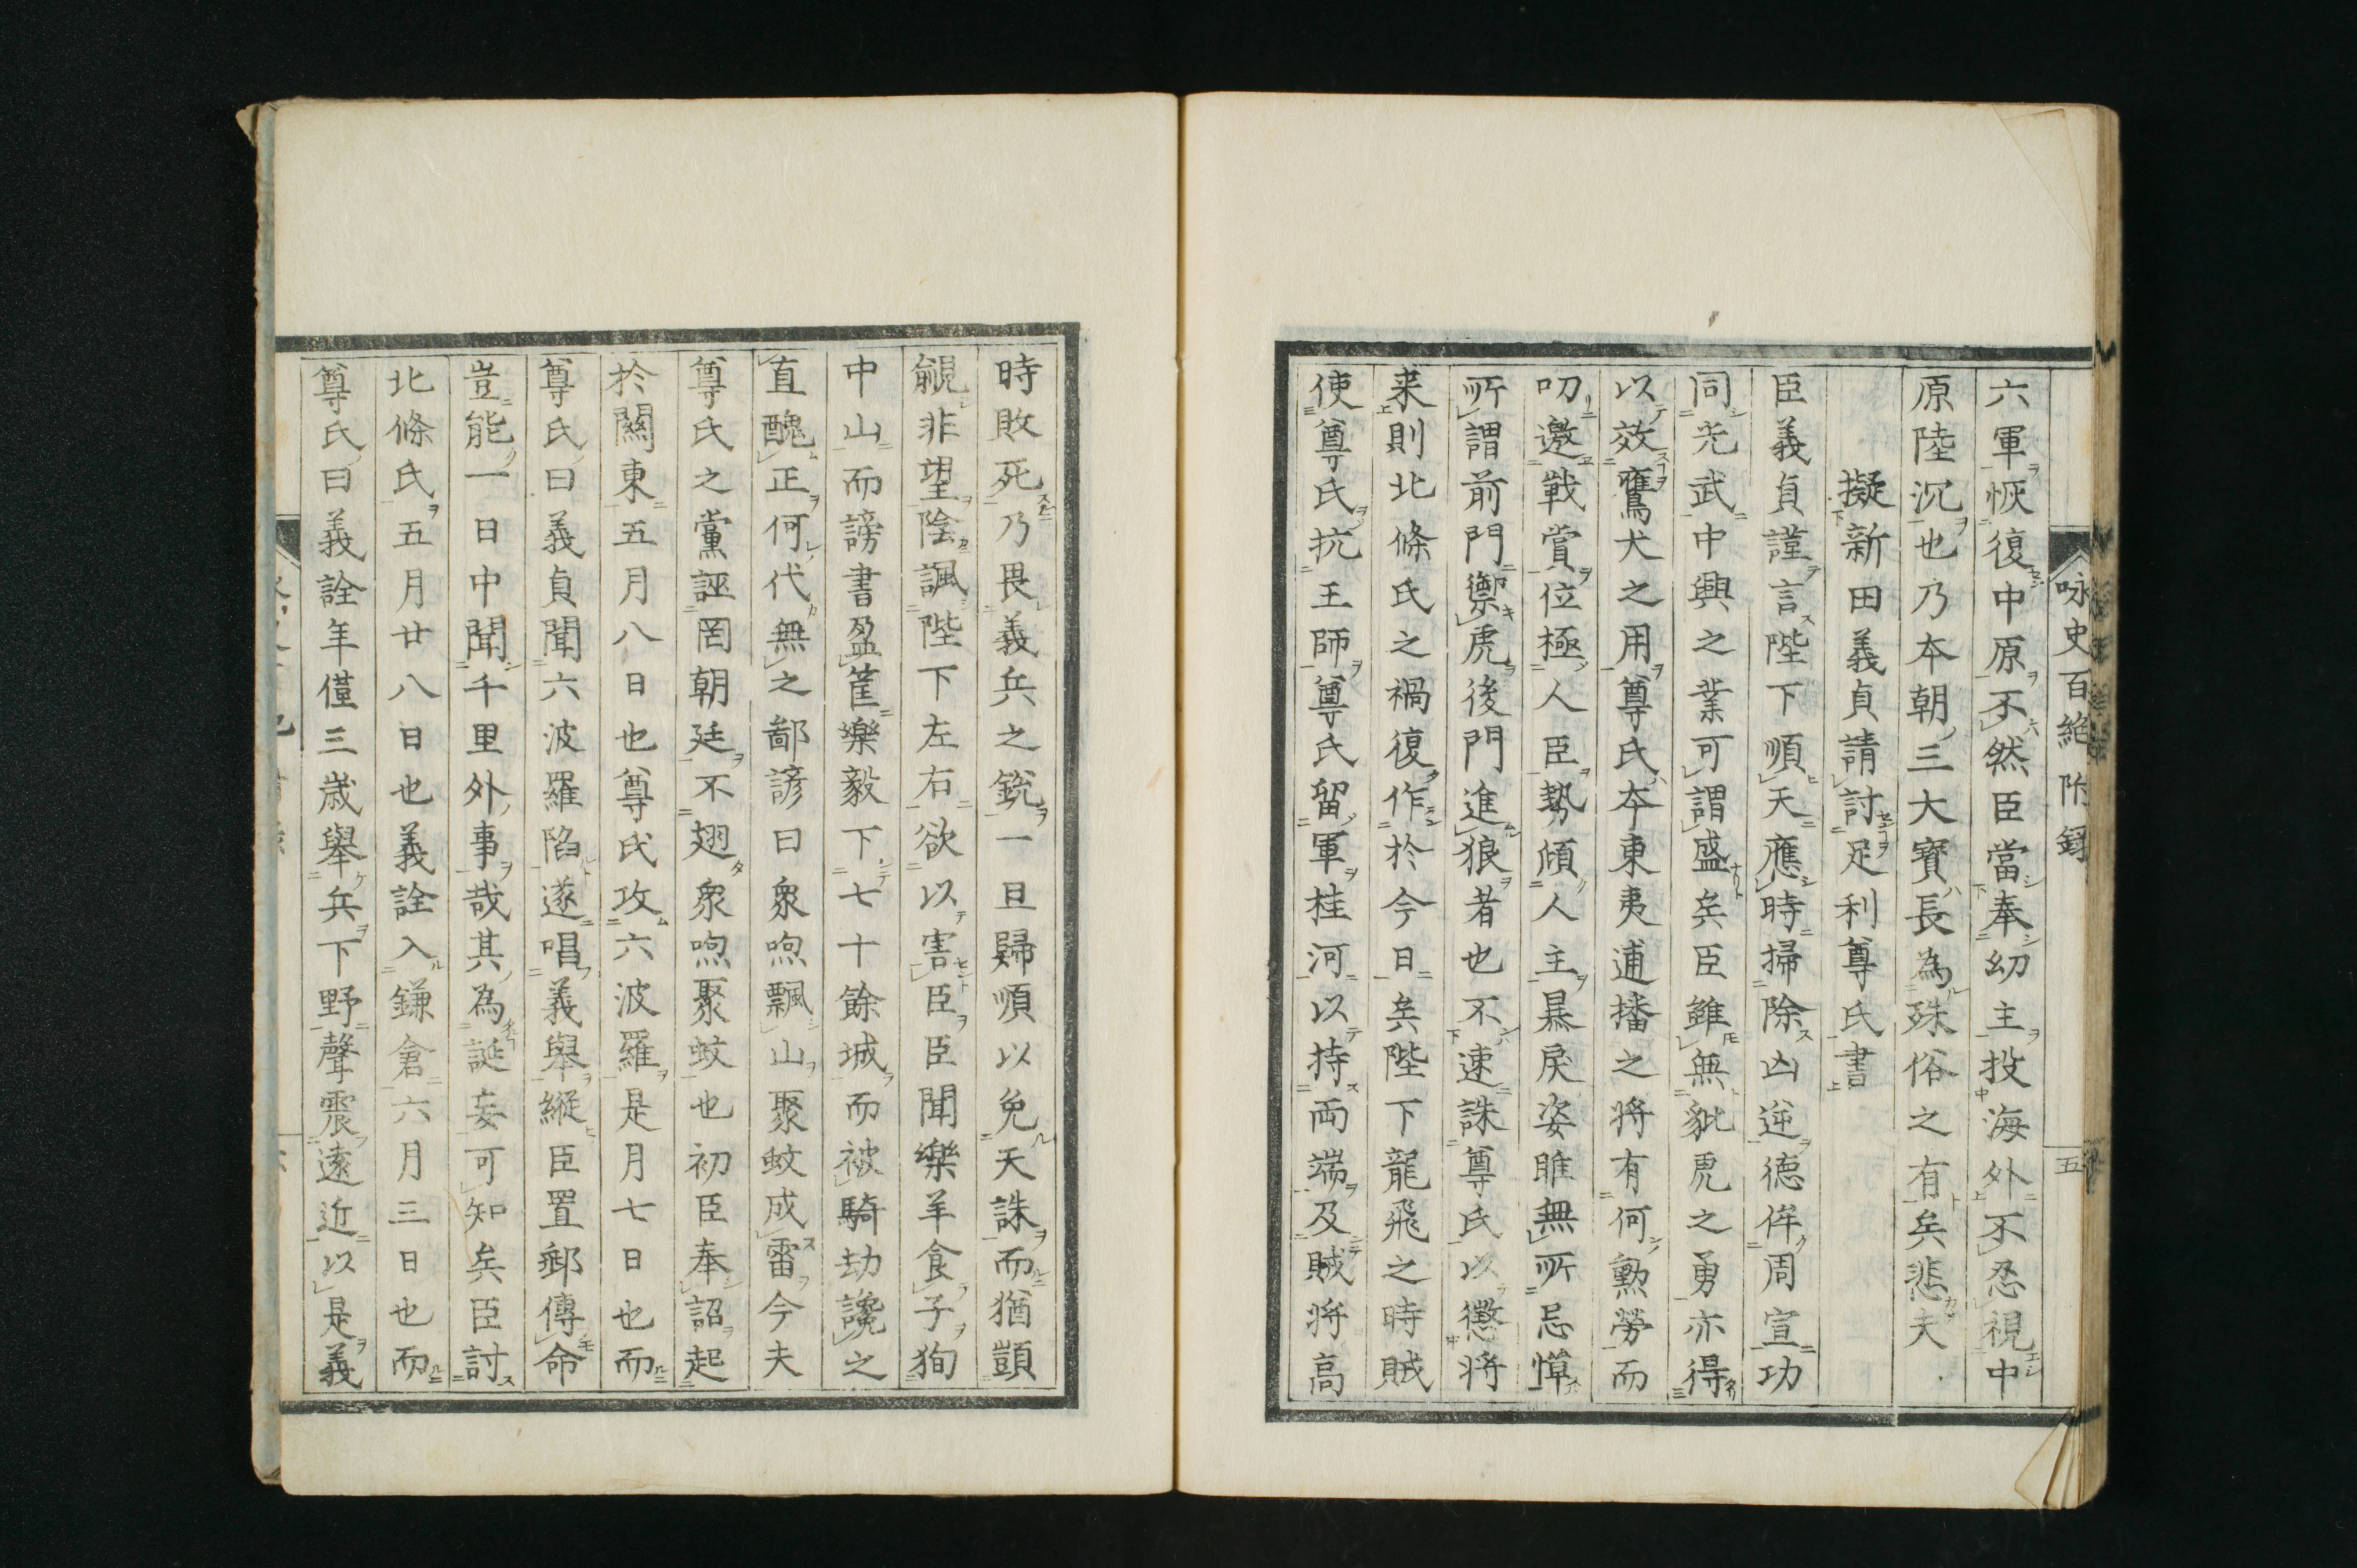 咏史百絶附録
五
六軍恢復中原不然臣當奉幼主投海外不忍視中
原陸沉也乃本朝三大寶長為殊俗之有矣悲夫
擬新田義貞請討足利尊氏書
臣義貞謹言陛下順天應時掃除凶逆德侔周宣功
同光武中興之業可謂盛矣臣雖無貔虎之勇亦得
以效鷹犬之用尊氏本東夷逋播之將有何勲勞而
叨邀戰賞位極人臣勢傾人主暴戾姿睢無所忌憚
所謂前門禦虎後門進狼者也不速誅尊氏以懲將
来則北條氏之禍復作於今日矣陛下龍飛之時賊
使尊氏抗王師尊氏留軍桂河以持両端及賊將高
時敗死乃畏義兵之銳一旦歸順以免天誅而猶顗
覦非望陰諷陛下左右欲以害臣臣聞樂羊食子狥
中山而謗書盈筐樂毅下七十餘城而被騎劫讒之
直醜正何代無之鄙諺曰衆喣飄山聚蚊成雷今夫
尊氏之黨誣罔朝廷不翅衆喣聚蚊也初臣奉詔起
於關東五月八日也尊氏攻六波羅是月七日也而
尊氏曰義貞聞六波羅陷遂唱義舉縱臣置郵傳命
豈能一日中聞千里外事哉其為誕妄可知矣臣討
北條氏五月廿八日也義詮入鎌倉六月三日也而
尊氏曰義詮年僅三歳舉兵下野聲震遠近以是義